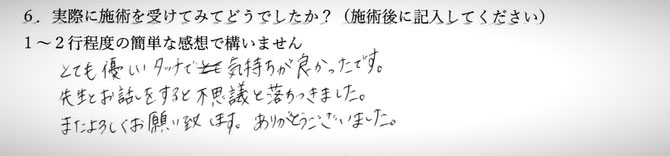 6．実際に施術を受けてみてどうでしたか？（施術後に記入してください）
1～2行程度の簡単な感想で構いません
とても優しいタッチで気持ちが良かったです。
先生とお話しをすると不思議と落ちつきました。
またよろしくお願い致します。ありがとうございました。